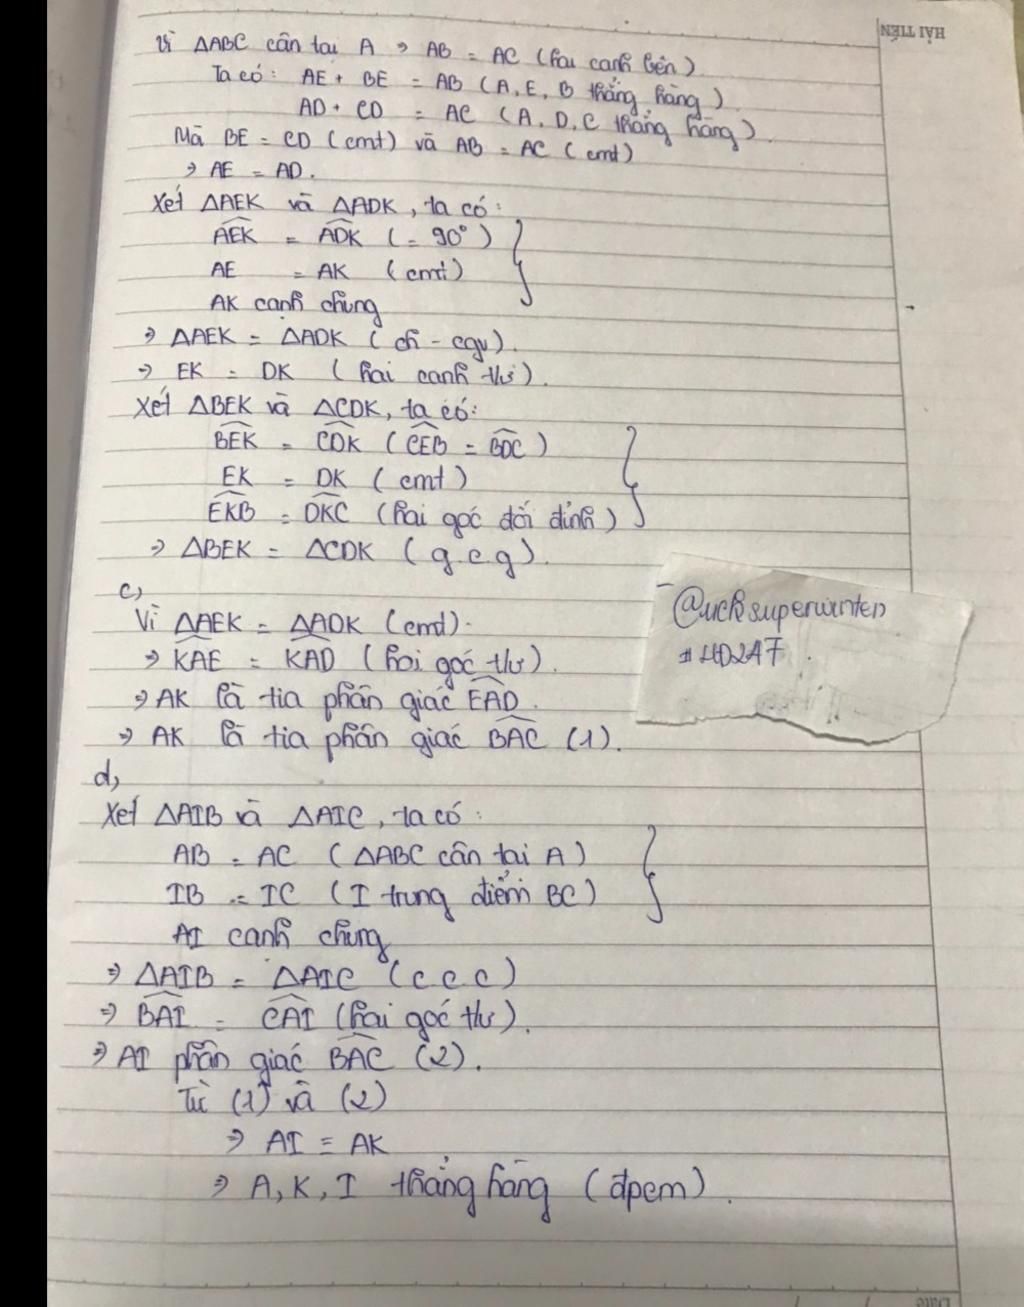 HẢI TIẾN
Vì ΔABC cân tại A ⇒ AB = AC (hai cạnh bên)
Ta có: AE + BE = AB (A, E, B thẳng hàng)
AD + CD = AC (A, D, C thẳng hàng)
Mà BE = CD (cmt) và AB = AC (cmt)
⇒ AE = AD.
Xét ΔAEK và ΔADK, ta có:
\widehat{AEK} = \widehat{ADK} (= 90°)
AE = AK (cmt)
AK cạnh chung
⇒ ΔAEK = ΔADK (ch - cgv).
⇒ EK = DK (hai cạnh t/ư).
Xét ΔBEK và ΔCDK, ta có:
\widehat{BEK} = \widehat{CDK} (\widehat{CEB} = \widehat{BDC})
EK = DK (cmt)
\widehat{EKB} = \widehat{DKC} (hai góc đối đỉnh)
⇒ ΔBEK = ΔCDK (g.c.g).
c,
Vì ΔAEK = ΔADK (cmt).
⇒ \widehat{KAE} = \widehat{KAD} (hai góc t/ư).
⇒ AK là tia phân giác \widehat{EAD}.
⇒ AK là tia phân giác \widehat{BAC} (1).
@uchsuperwinter
#4D2A7
d,
Xét ΔAIB và ΔAIC, ta có:
AB = AC (ΔABC cân tại A)
IB = IC (I trung điểm BC)
AI cạnh chung
⇒ ΔAIB = ΔAIC (c c c)
⇒ \widehat{BAI} = \widehat{CAI} (hai góc t/ư).
⇒ AI phân giác \widehat{BAC} (2).
Từ (1) và (2)
⇒ AI ≡ AK
⇒ A, K, I thẳng hàng (đpcm).
Date